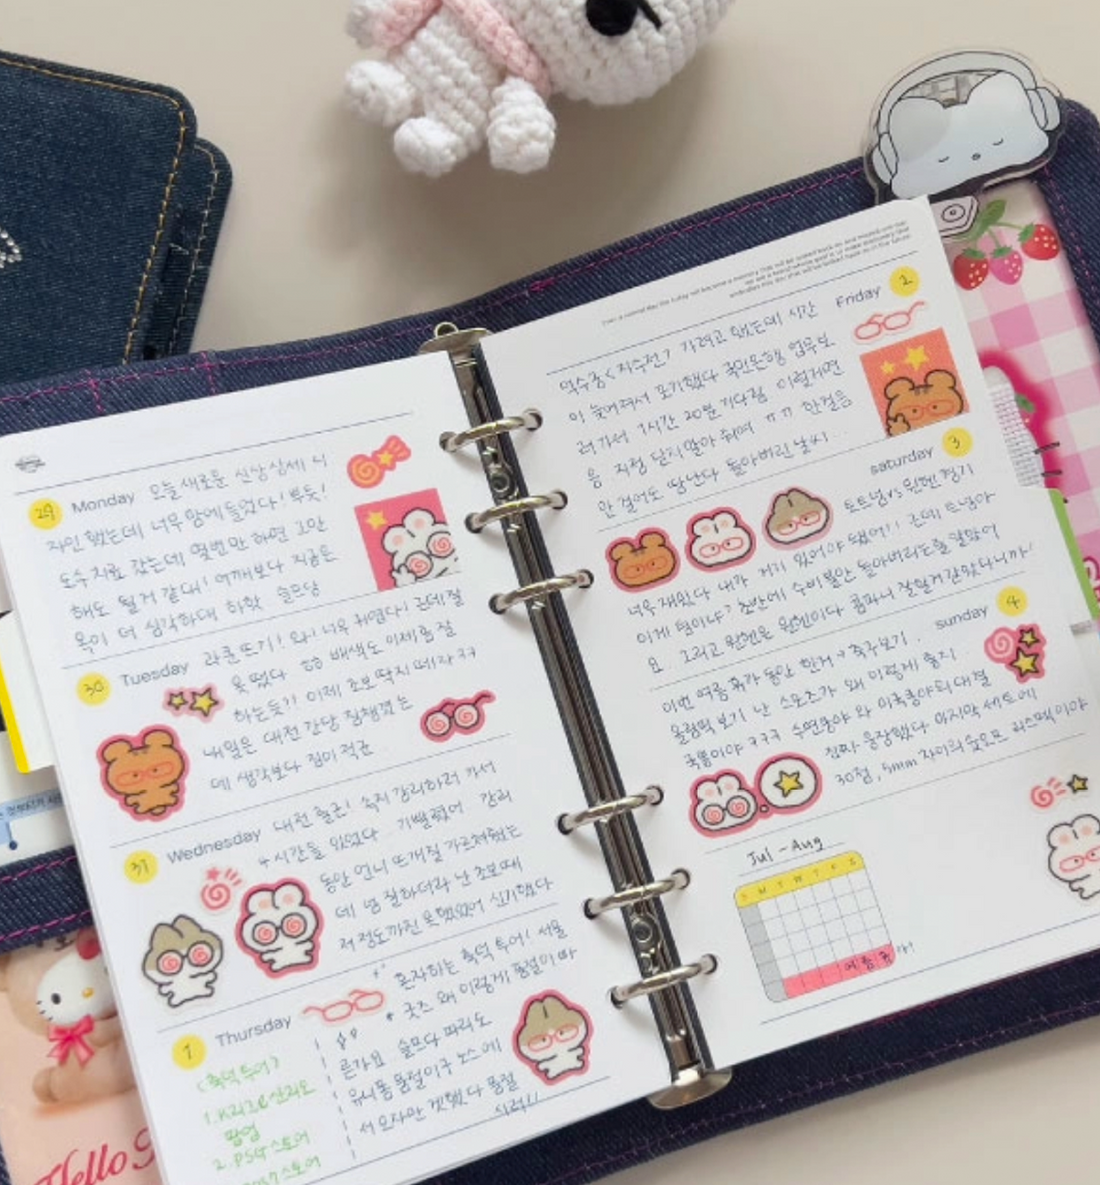 29 Monday 오늘 새로운 신상 상세 디
자인 했는데 너무 맘에 들었다! 뿌듯!
도수치료 갔는데 열번만 하면 그만
해도 될거 같대! 어깨보다 지금은
목이 더 심각하대 하핫 슬프당
30 Tuesday 라쿤뜨기! 와! 너무 귀엽다! 근데 잘
못 떴다 배색도 이제 좀 잘
하는듯? 이제 초보 딱지 떼자 ㅋㅋ
내일은 대전 간당 짐챙겼는
데 생각보다 짐이 적군
31 Wednesday 대전 출근! 속지 강의하러 가서
4시간들 있었다 기빨렸어 강의
동안 언니 뜨개질 가르쳐줬는
데 엄청 잘하더라 난 초보때
저정도까진 못했었어 신기했다
1 Thursday
혼자하는 축덕 투어! 서울
굿즈 왜 이렇게 품절이 빠
른가요 슬프다 파리도
유니폼 품절이구 노스에
서 모자만 겟했다 품절
시러!!
<축덕투어>
1. K리그 산리오
팝업
2. PSG 스토어
스토어
Friday 2
덕수궁 < 자수전 > 가려고 했는데 시간
이 늦어져서 포기했다 국민은행 업무보
러가서 1시간 20분 기다림 이럴거면
응 지점 닫지말아 줘여 ㅠㅠ 한걸음
안 걸어도 땀난다 돌아버린 날씨
saturday 3
토트넘 vs 뮌헨 경기
너무 재밌다 내가 거기 있어야 됐어!! 근데 토넘아
이게 팀이냐? 초반에 수비불안 돌아버리는줄 알았어
요 그리고 뮌헨은 뮌헨이다 콤파니 잘할거 같았다니까!
sunday 4
이번 여름 휴가 동안 한거 → 축구보기,
올림픽 보기 난 스포츠가 왜 이렇게 좋지
국뽕이야 ㅋㅋㅋ 수면풍야 와 미국중야의 대결
진짜 웅장했다 마지막 세트에
30점, 5mm 차이의 슛오프 리스펙이야
Jul - Aug
S M T W T F S
여름휴가!
Hello